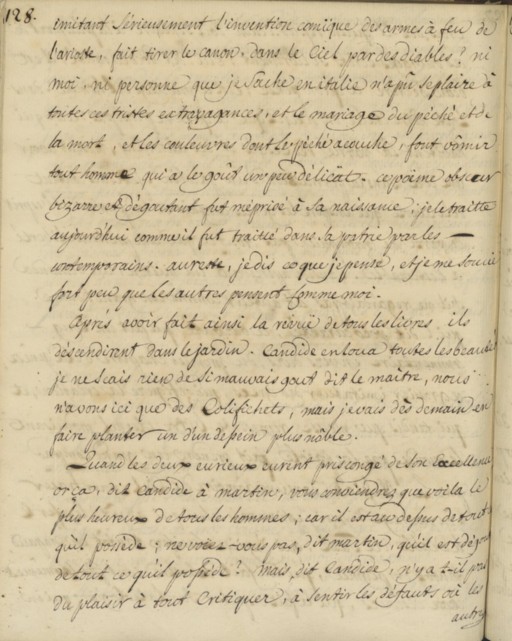 128.
imitant sérieusement l'invention comique des armes à feu de
l'arioste, fait tirer le canon dans le Ciel par des diables? ni
moi, ni personne que je sache en italie n'a pu se plaire à
toutes ces tristes extravagances, et le mariage du péché et de
la mort, et les couleuvres dont le péché acouche, font vômir
tout homme qui a le goût un peu délicat. ce poëme obscur
bezarre et dégoutant fut méprisé à sa naissance; je le traitte
aujourdhui comme il fut traitté dans sa patrie par les
contemporains. au reste, je dis ce que je pense, et je me soucie
fort peu que les autres pensent comme moi.
Après avoir fait ainsi la revuë de tous les livres, ils
déscendirent dans le jardin. Candide en loua toutes les beautés
je ne scais rien de si mauvais gout dit le maître, nous
n'avons ici que des Colifichets, mais je vais dès demain en
faire planter un d'un dessein plus nôble.
Quand les deux curieux eurent pris congé de son Excellence
or ça, dit Candide à martin, vous conviendrez que voila le
plus heureux de tous les hommes; car il est au dessus de tout
qu'il possède; ne voiez-vous pas, dit martin, qu'il est dégouté
de tout ce qu'il possède? mais, dit Candide, n'y a t-il pas
du plaisir à tout Critiquer, à sentir les défauts où les
autres